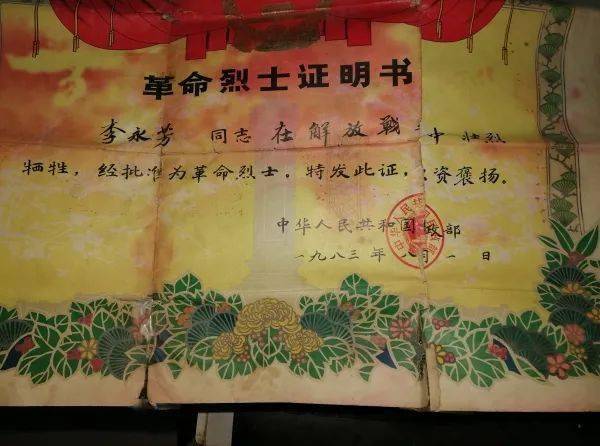 革命烈士证明书
李永芳 同志 在解放战 中 壮烈
牺牲，经批准为革命烈士。特发此证，资褒扬。
中华人民共和国 政部
一九八三年八月一日